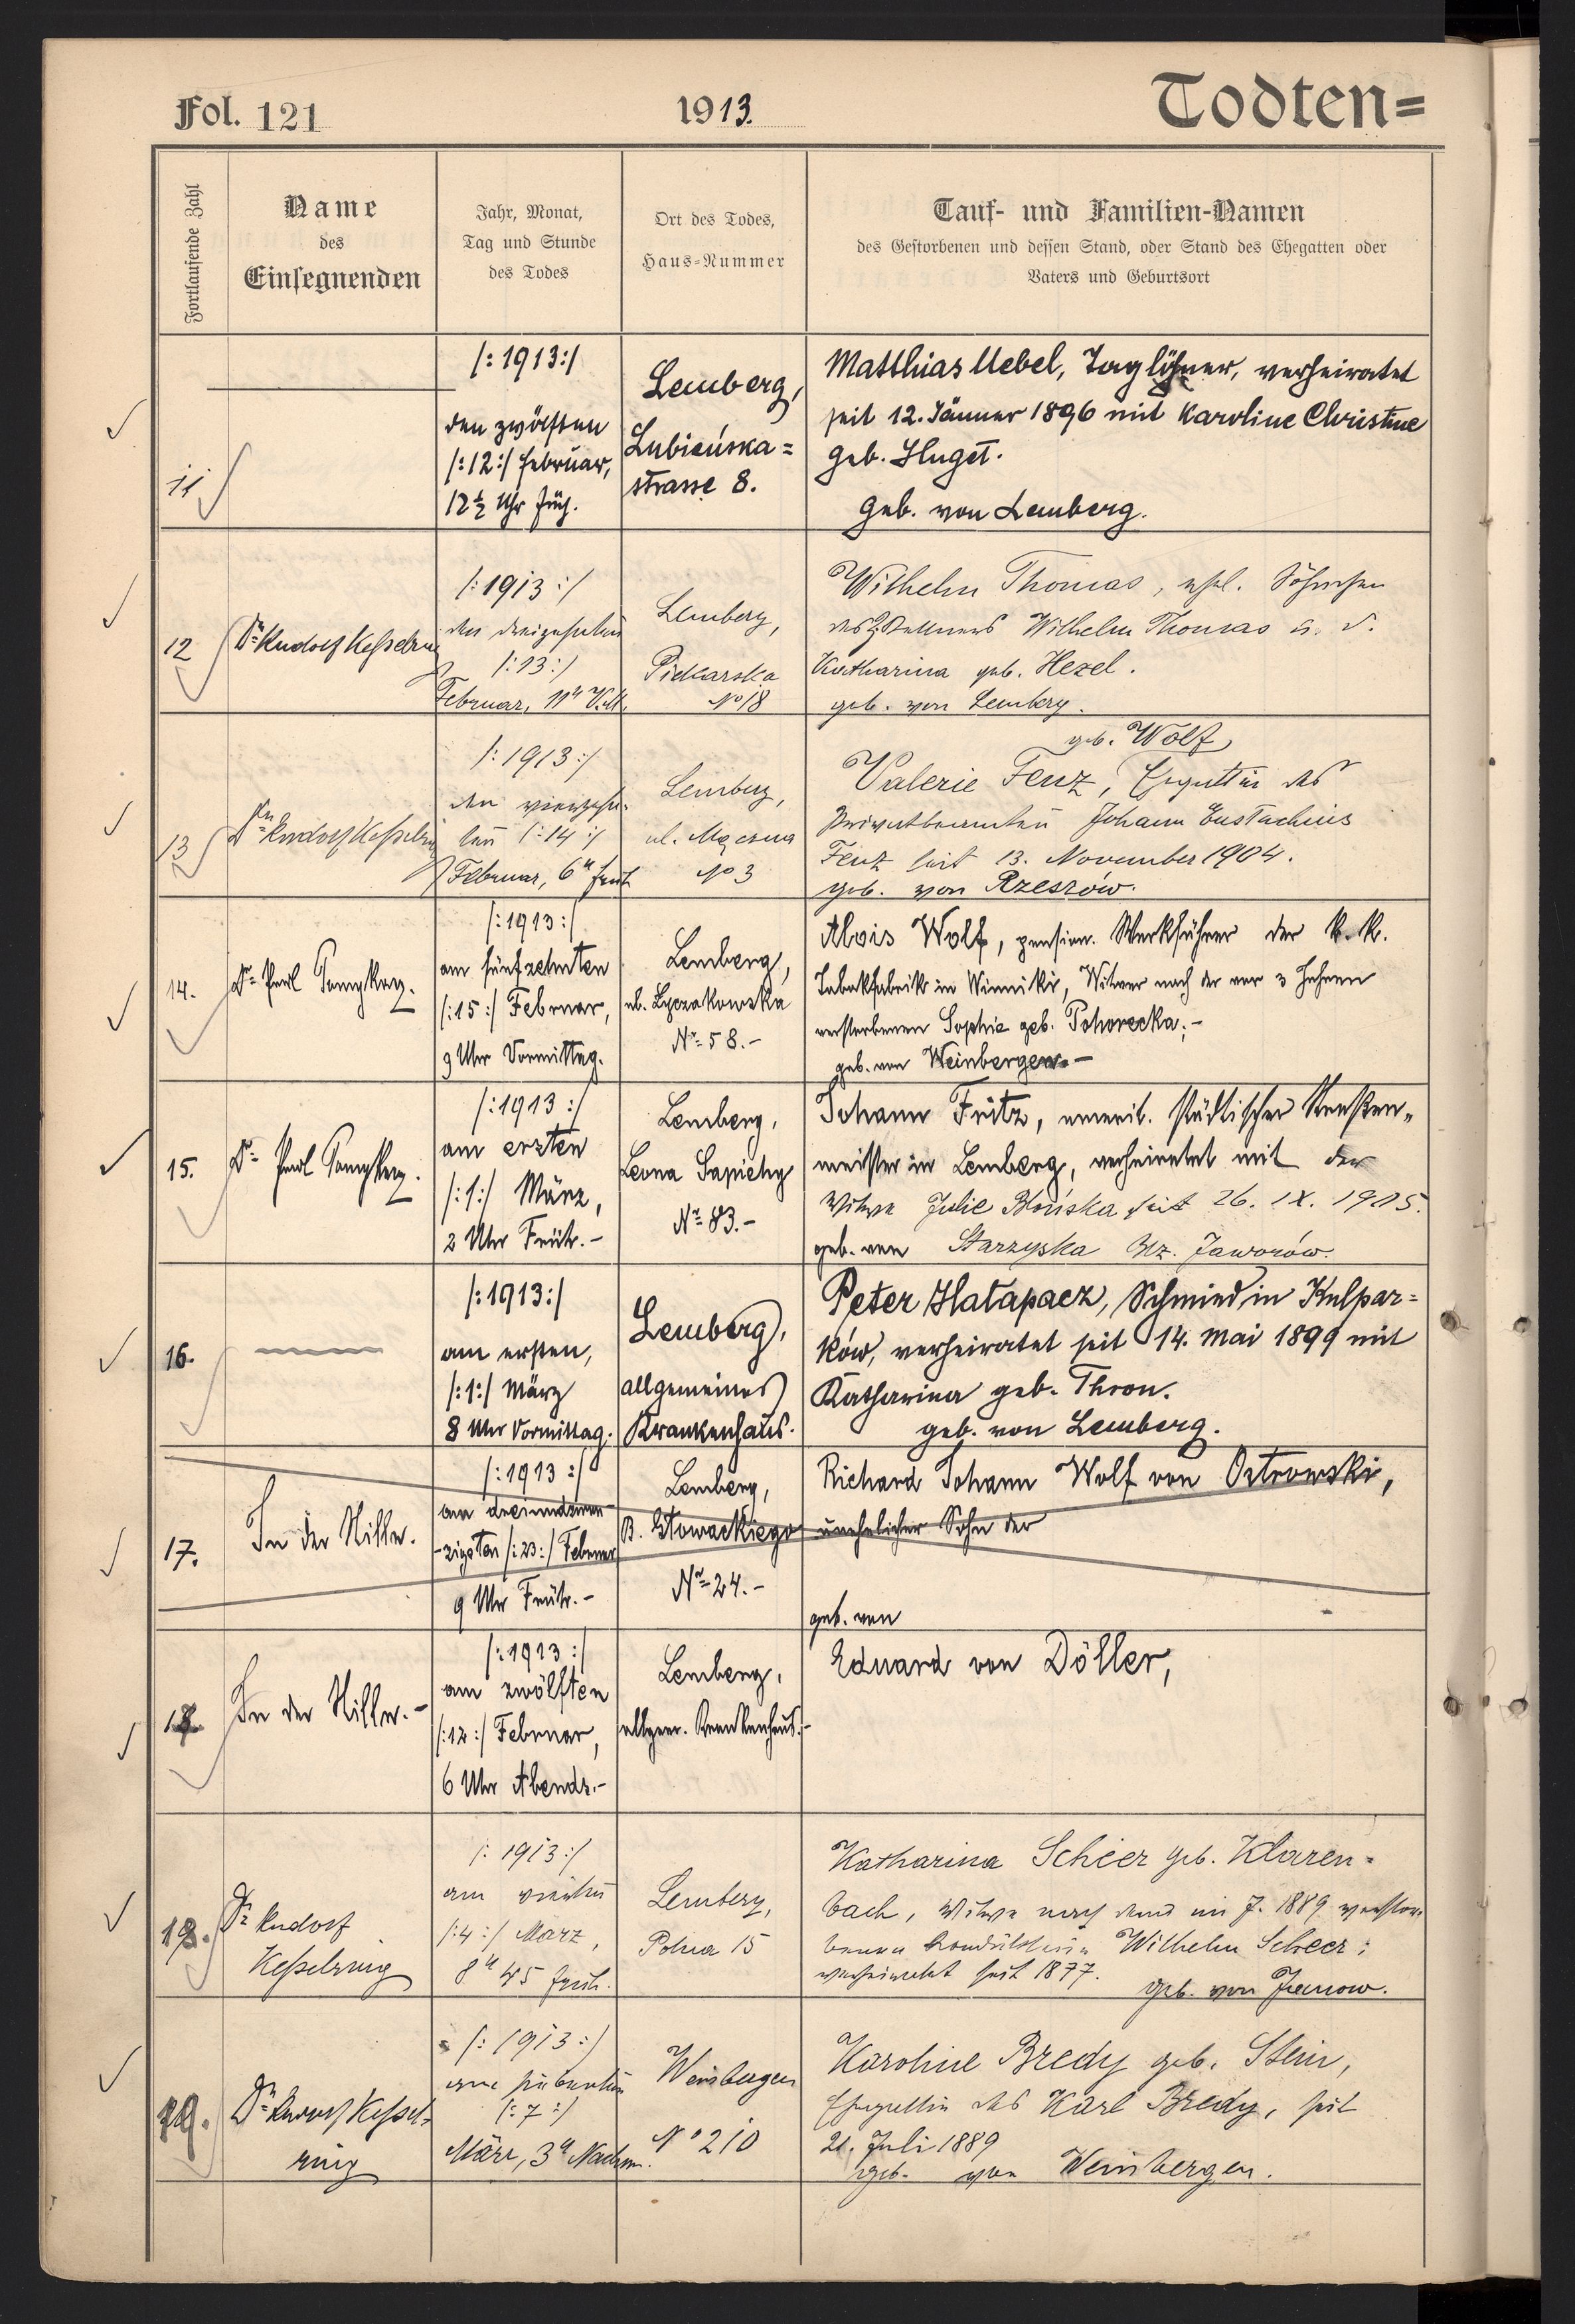 Fol. 121
1913.
Todten=
Fortlaufende Zahl
Name
des
Einsegnenden
Jahr, Monat,
Tag und Stunde
des Todes
Ort des Todes,
Haus-Nummer
Tauf- und Familien-Namen
des Gestorbenen und dessen Stand, oder Stand des Ehegatten oder
Vaters und Geburtsort
11
/: 1913:/
den zwölften
/:12:/ Februar,
12½ Uhr früh.
Lemberg,
Lubieńska=
strasse 8.
Matthias Uebel, Taglöhner, verheiratet
seit 12. Jänner 1896 mit Karoline Christine
geb. Huget.
geb. von Lemberg.
12
Dr Rudolf Kesselring
/: 1913 :/
den dreizehnten
/:13:/
Februar, 11h V.M.
Lemberg,
Piekarska
No 18
Wilhelm Thomas, ehel. Söhnchen
des Wilhelm Thomas u. d.
Katharina geb. Hezel.
geb. von Lemberg.
13
Dr Rudolf Kesselring
/: 1913 :/
den vierzehn-
ten /:14:/
Februar, 6h früh
Lemberg,
ul. Mączna
No 3
geb. Wolf
Valerie Fenz, Ehegattin des
Privatbeamten Johann Eustachius
Fenz seit 13. November 1904.
geb. von Rzeszów.
14.
Dr Paul
/:1913:/
am fünfzehnten
/:15:/ Februar,
9 Uhr Vormittag.
Lemberg,
ul. Łyczakowska
Nr 58.-
Alois Wolf, pension. Werkführer der k.k.
Tabakfabrik in Winniki, Witwer nach der vor 3 Jahren
verstorbenen Sophie geb. Pohorecka;-
geb. von Weinbergen.-
15.
Dr Paul
/:1913:/
am ersten
/:1:/ März,
2 Uhr Früh.-
Lemberg,
Leona Sapiehy
Nr 83.-
Johann Fritz, emerit. städtischer Strassen-
meister in Lemberg, verheiratet mit der
Witwe Julie Błońska seit 26. IX. 1905.
geb. von Starzyska Bz. Jaworów.
16.
/:1913:/
am ersten,
/:1:/ März
8 Uhr Vormittag.
Lemberg,
allgemeines
Krankenhaus.
Peter Hałapacz, Schmied in Kulpar=
ków, verheiratet seit 14. Mai 1899 mit
Katharina geb. Thron.
geb. von Lemberg.
17.
In der Stille.
/:1913:/
am dreiundzwan-
-zigsten /:23:/ Februar
9 Uhr Früh.-
Lemberg,
B. Głowackiego
Nr 24.-
Richard Johann Wolf von Ostrowski,
unehelicher Sohn der
geb. von
In der Stille.-
/:1913:/
am zwölften
/:12:/ Februar,
6 Uhr Abends.-
Lemberg,
allgem. Krankenhaus.-
Eduard von Döller,
Dr Rudolf
Kesselring
/: 1913:/
am vierten
/:4:/ März,
8h 45 früh.
Lemberg,
Polna 15
Katharina Scheer geb. Klaren-
bach, Witwe nach dem im J. 1889 verstor-
benen Wilhelm Scheer;
verheiratet seit 1877. geb. von Janow.
Dr Rudolf Kessel-
ring
/: 1913:/
am siebenten
/:7:/
März, 3h Nachm.
Weinbergen
No 210
Karoline Bredy geb. Stein,
Ehegattin des Karl Bredy, seit
21. Juli 1889
geb. von Weinbergen.